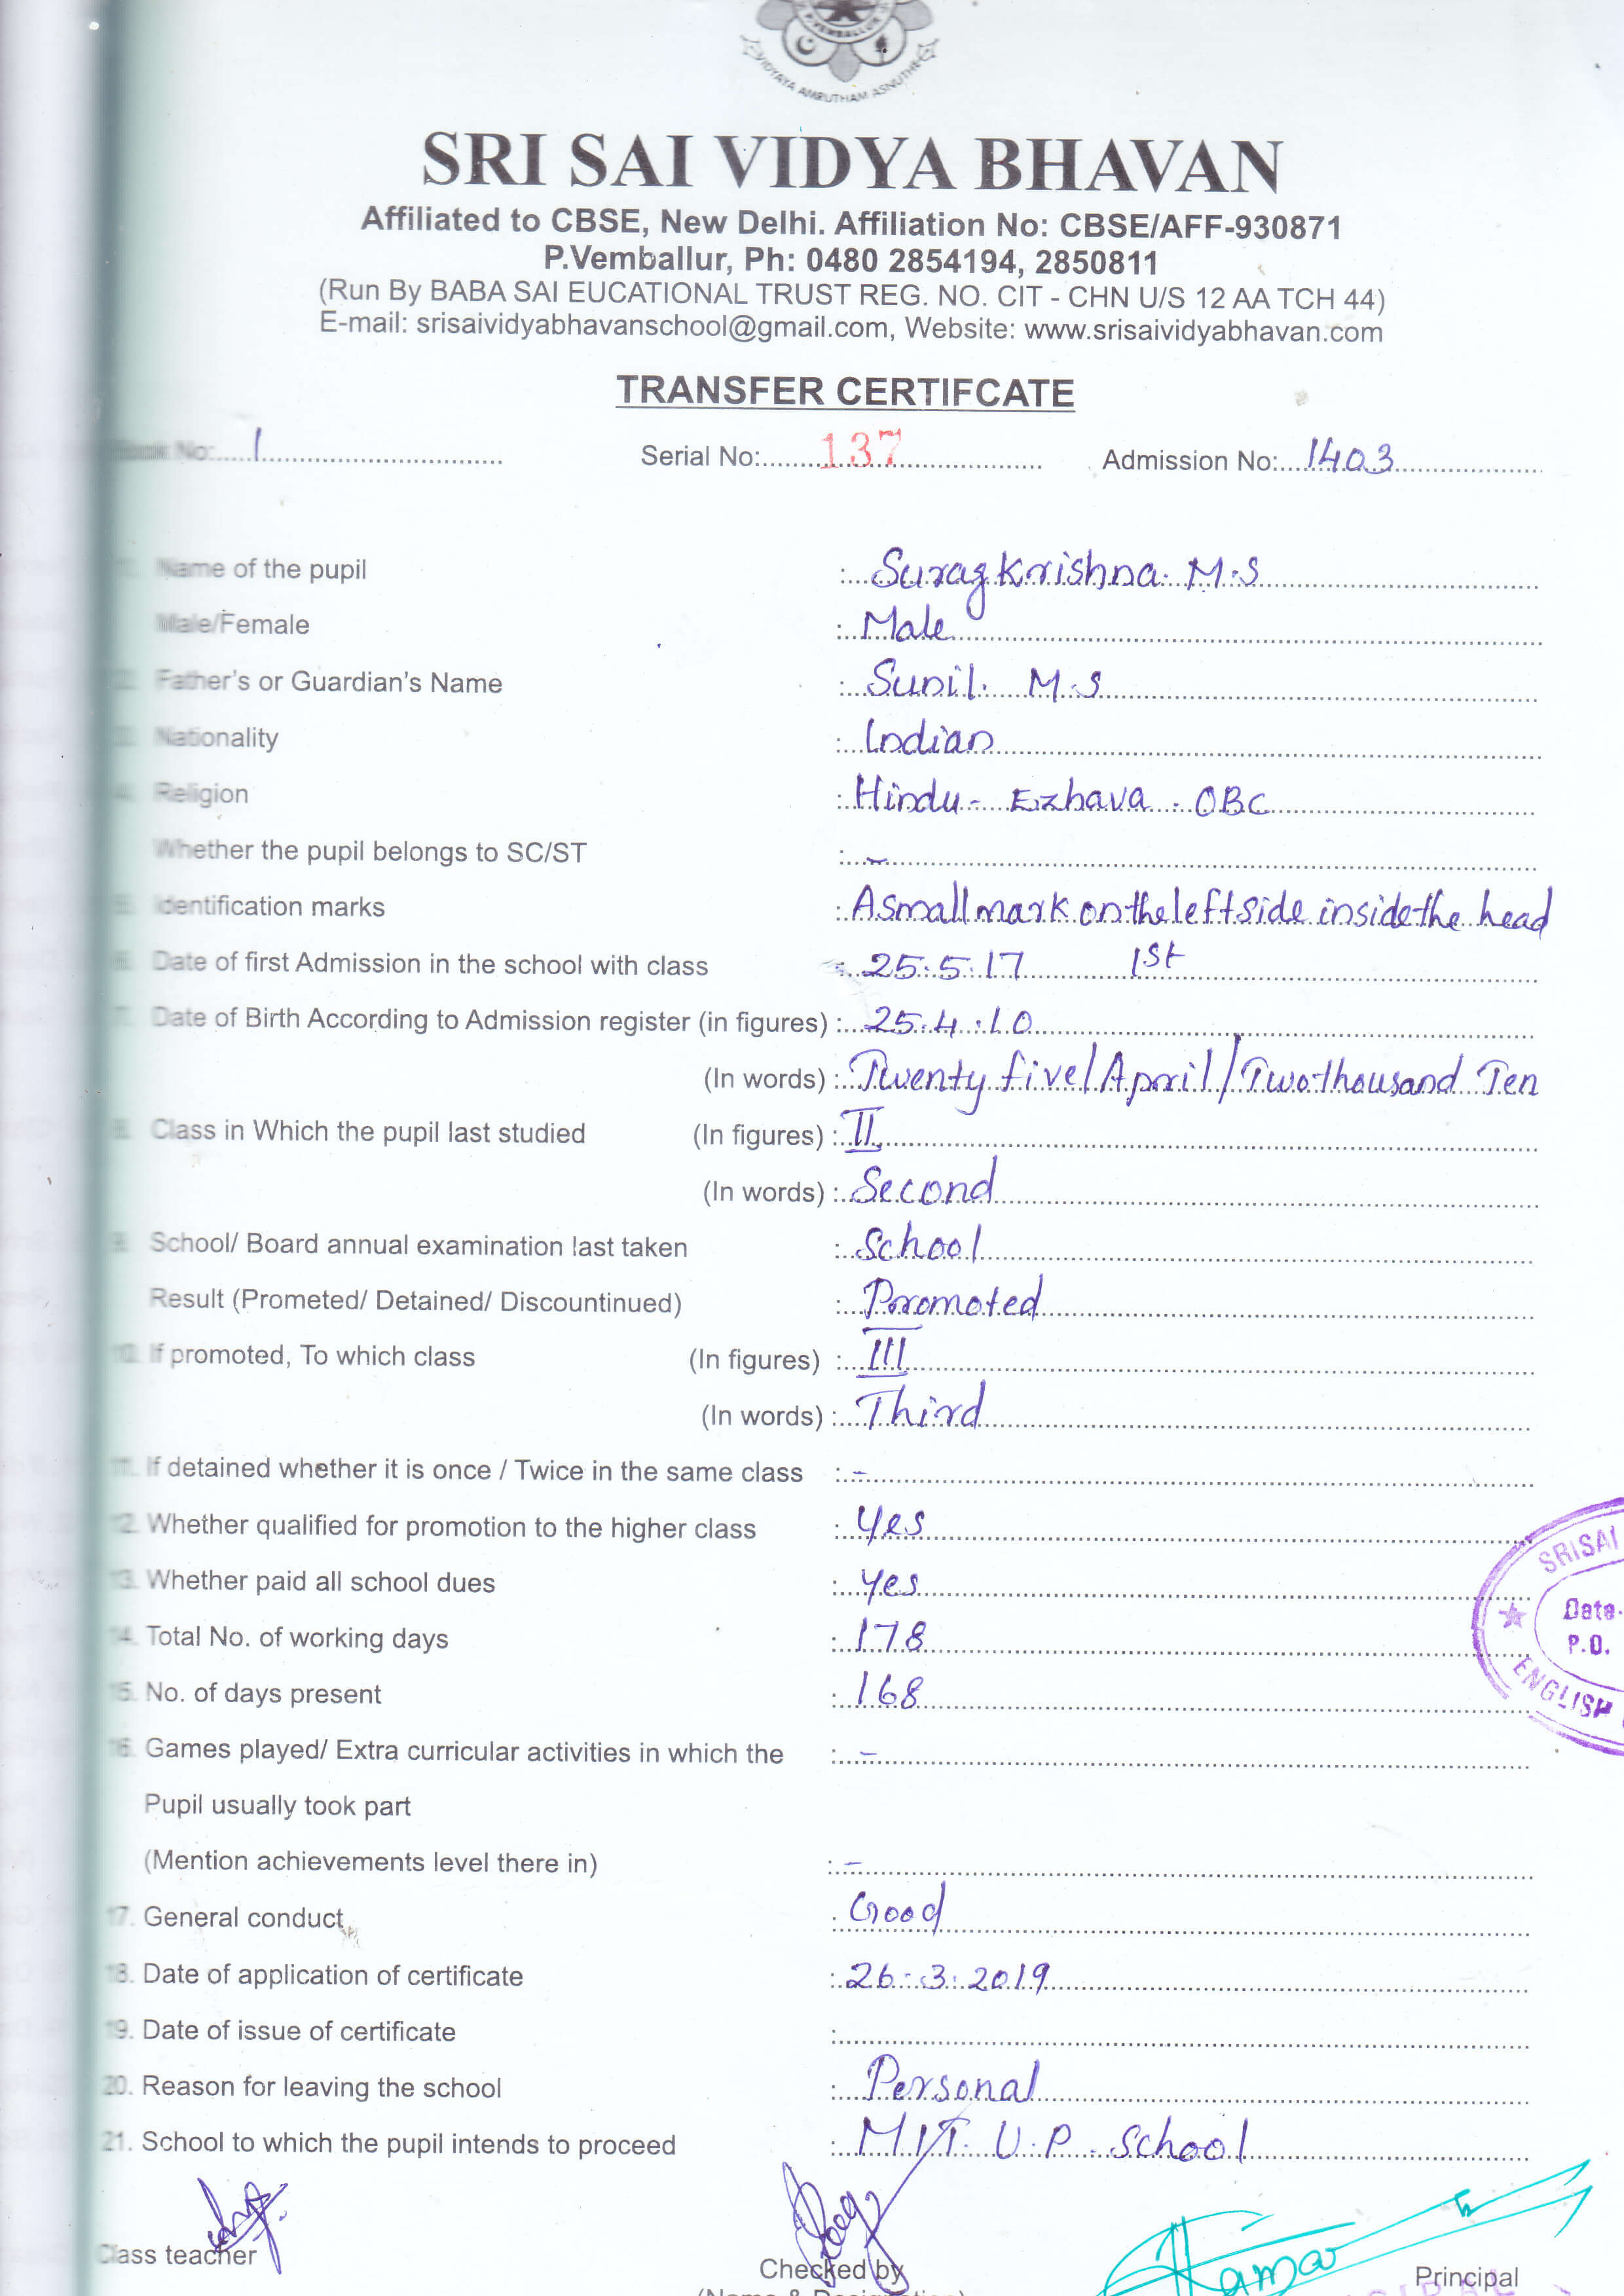 P.VEMBALLUR
VIDYAYA AMRUTHAM ASNUTHE
SRI SAI VIDYA BHAVAN
Affiliated to CBSE, New Delhi. Affiliation No: CBSE/AFF-930871
P.Vemballur, Ph: 0480 2854194, 2850811
(Run By BABA SAI EUCATIONAL TRUST REG. NO. CIT - CHN U/S 12 AA TCH 44)
E-mail: srisaividyabhavanschool@gmail.com, Website: www.srisaividyabhavan.com
TRANSFER CERTIFCATE
Book No: 1 Serial No: 137 Admission No: 1403
1. Name of the pupil : Surag Krishna. M.S
Male/Female : Male
2. Father's or Guardian's Name : Sunil. M.S
3. Nationality : Indian
4. Religion : Hindu - Ezhava - OBC
Whether the pupil belongs to SC/ST : -
5. Identification marks : A small mark on the left side inside the head
6. Date of first Admission in the school with class : 25.5.17 1st
7. Date of Birth According to Admission register (in figures) : 25.4.10
(In words) : Twenty five/April/Two thousand Ten
8. Class in Which the pupil last studied (In figures) : II
(In words) : Second
9. School/ Board annual examination last taken : School
Result (Prometed/ Detained/ Discountinued) : Promoted
10. If promoted, To which class (In figures) : III
(In words) : Third
11. If detained whether it is once / Twice in the same class : -
12. Whether qualified for promotion to the higher class : Yes
13. Whether paid all school dues : Yes
14. Total No. of working days : 178
15. No. of days present : 168
16. Games played/ Extra curricular activities in which the : -
Pupil usually took part
(Mention achievements level there in) : -
17. General conduct : Good
18. Date of application of certificate : 26.3.2019
19. Date of issue of certificate :
20. Reason for leaving the school : Personal
21. School to which the pupil intends to proceed : MIT U.P. School
SRISAI
Date
P.O.
ENGLISH
Class teacher Checked by Principal